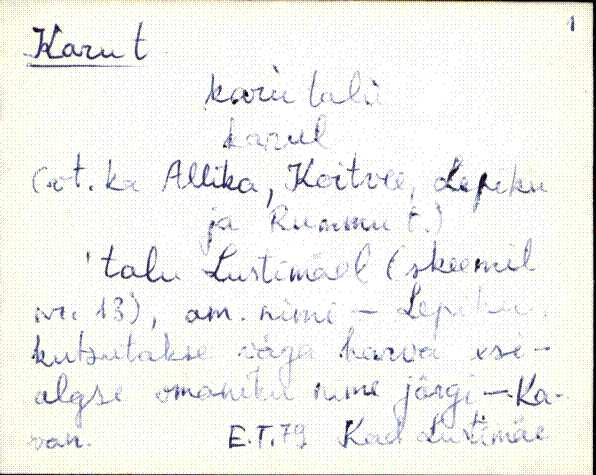 1
Karu t
karu talu
karul
(vt. ka Allika, Koitvee, Lepiku
ja Rummu t.)
'talu Lustimäel (skeemil
nr. 13), am. nimi – Lepiku,
kutsutakse väga harva esi-
algse omaniku nime järgi –
E.T.79 Kad Lustimäe